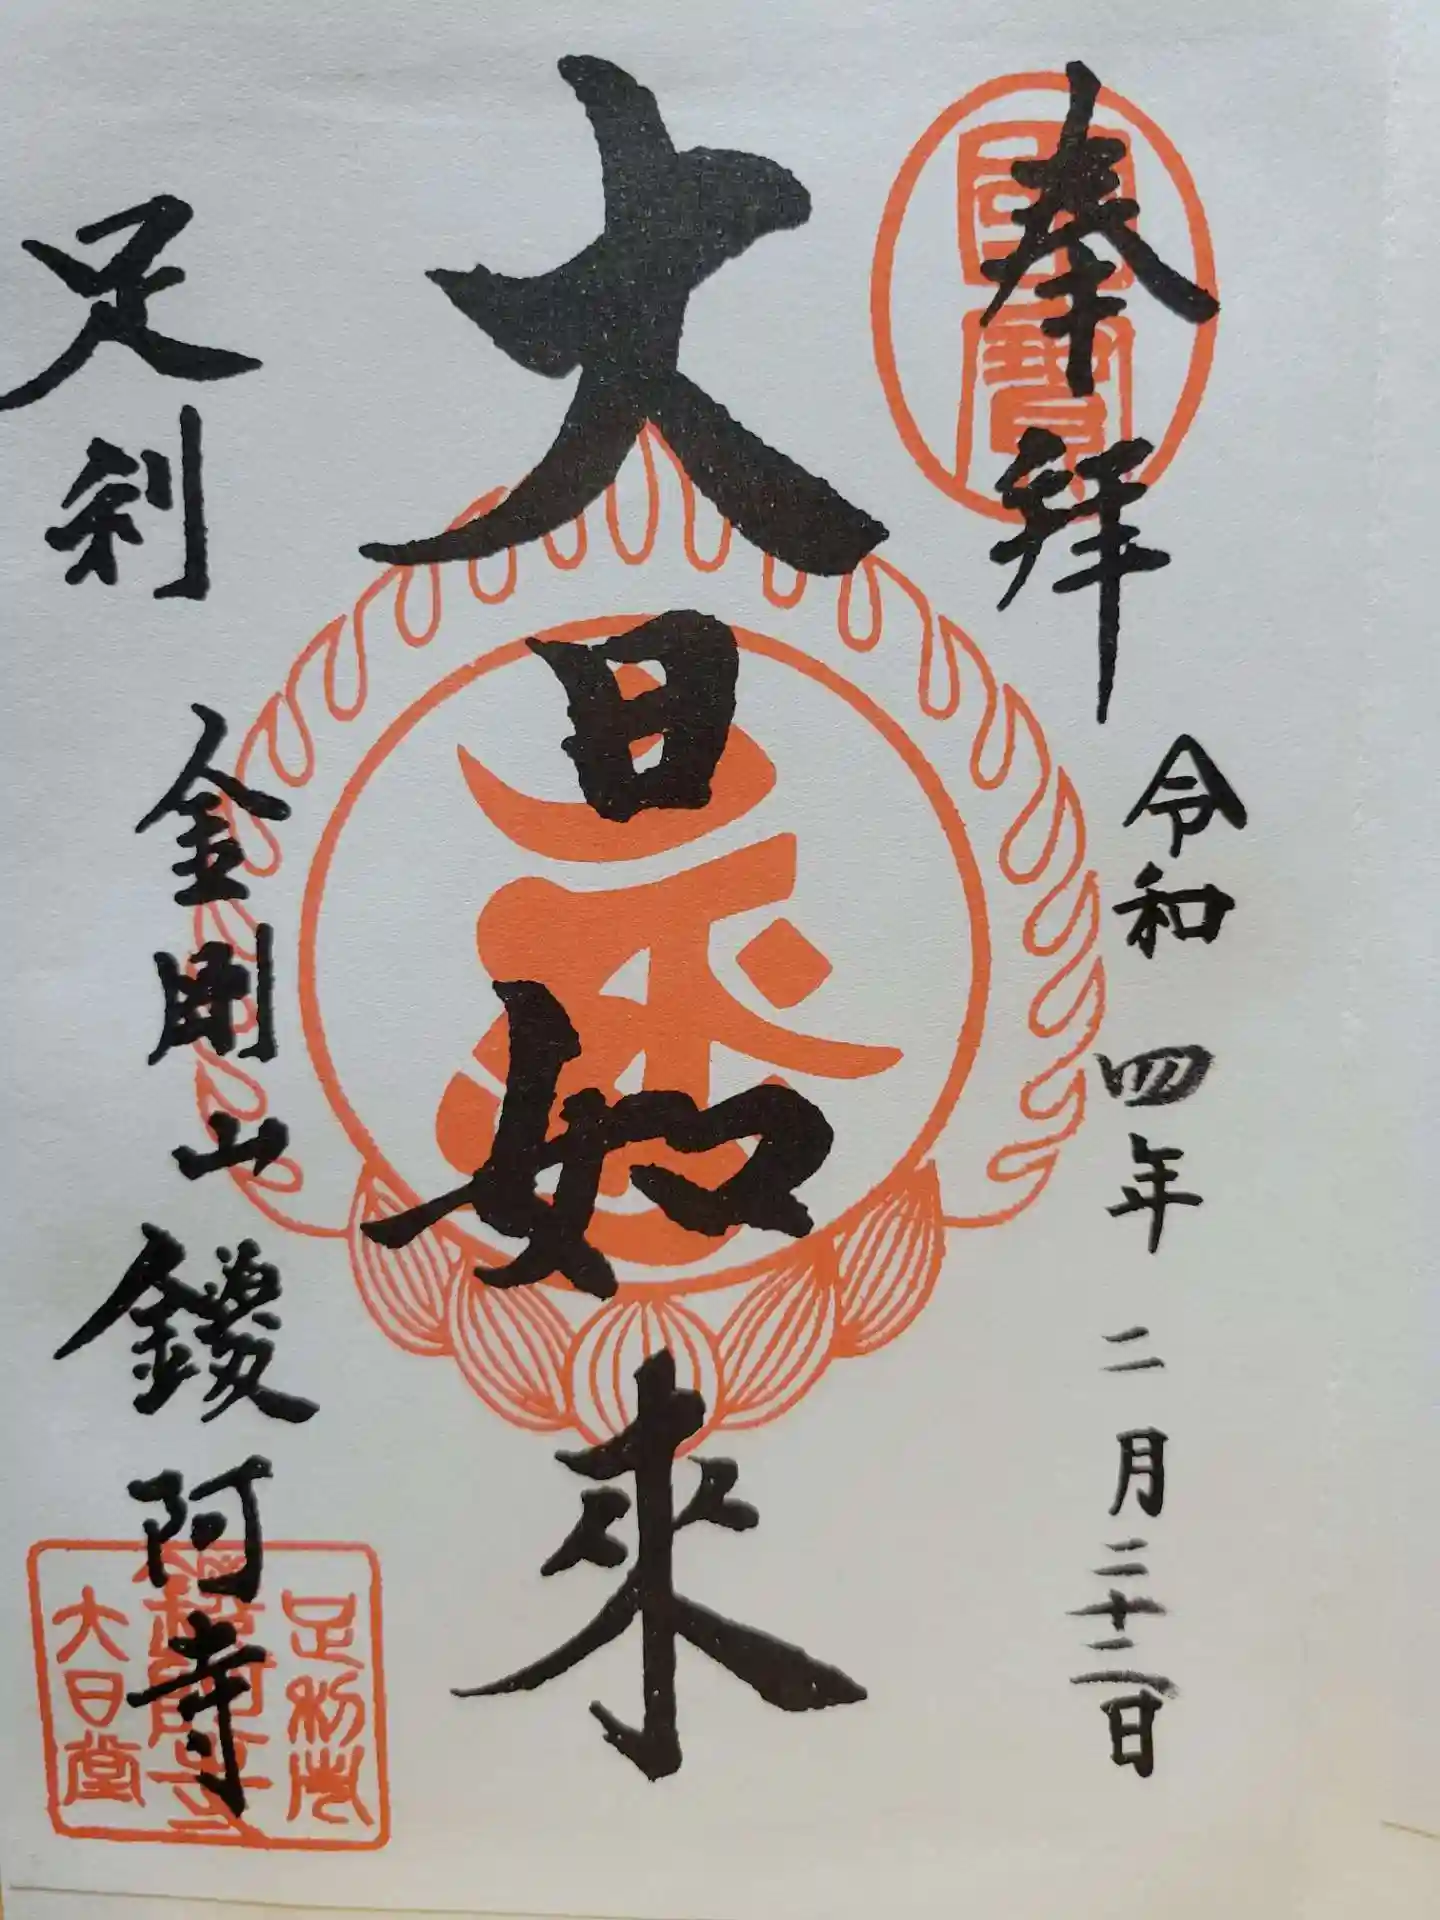 奉拝
國寶
令和四年二月二十二日
大日如来
足利
金剛山鑁阿寺
足利
鑁阿寺
大日堂